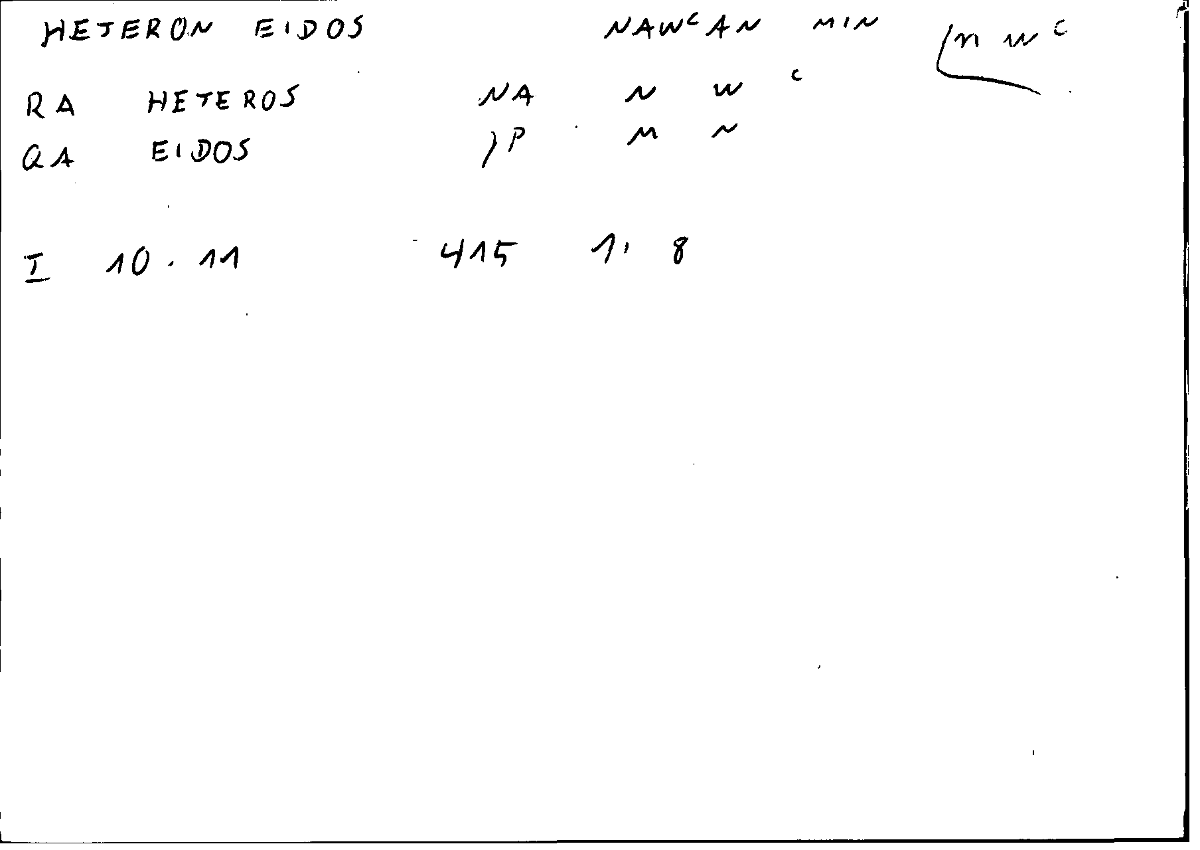 HETERON EIDOS NAWᶜAN MIN n wᶜ
RA HETEROS NA N W ᶜ
QA EIDOS P M N
I 10.11 415 1, 8